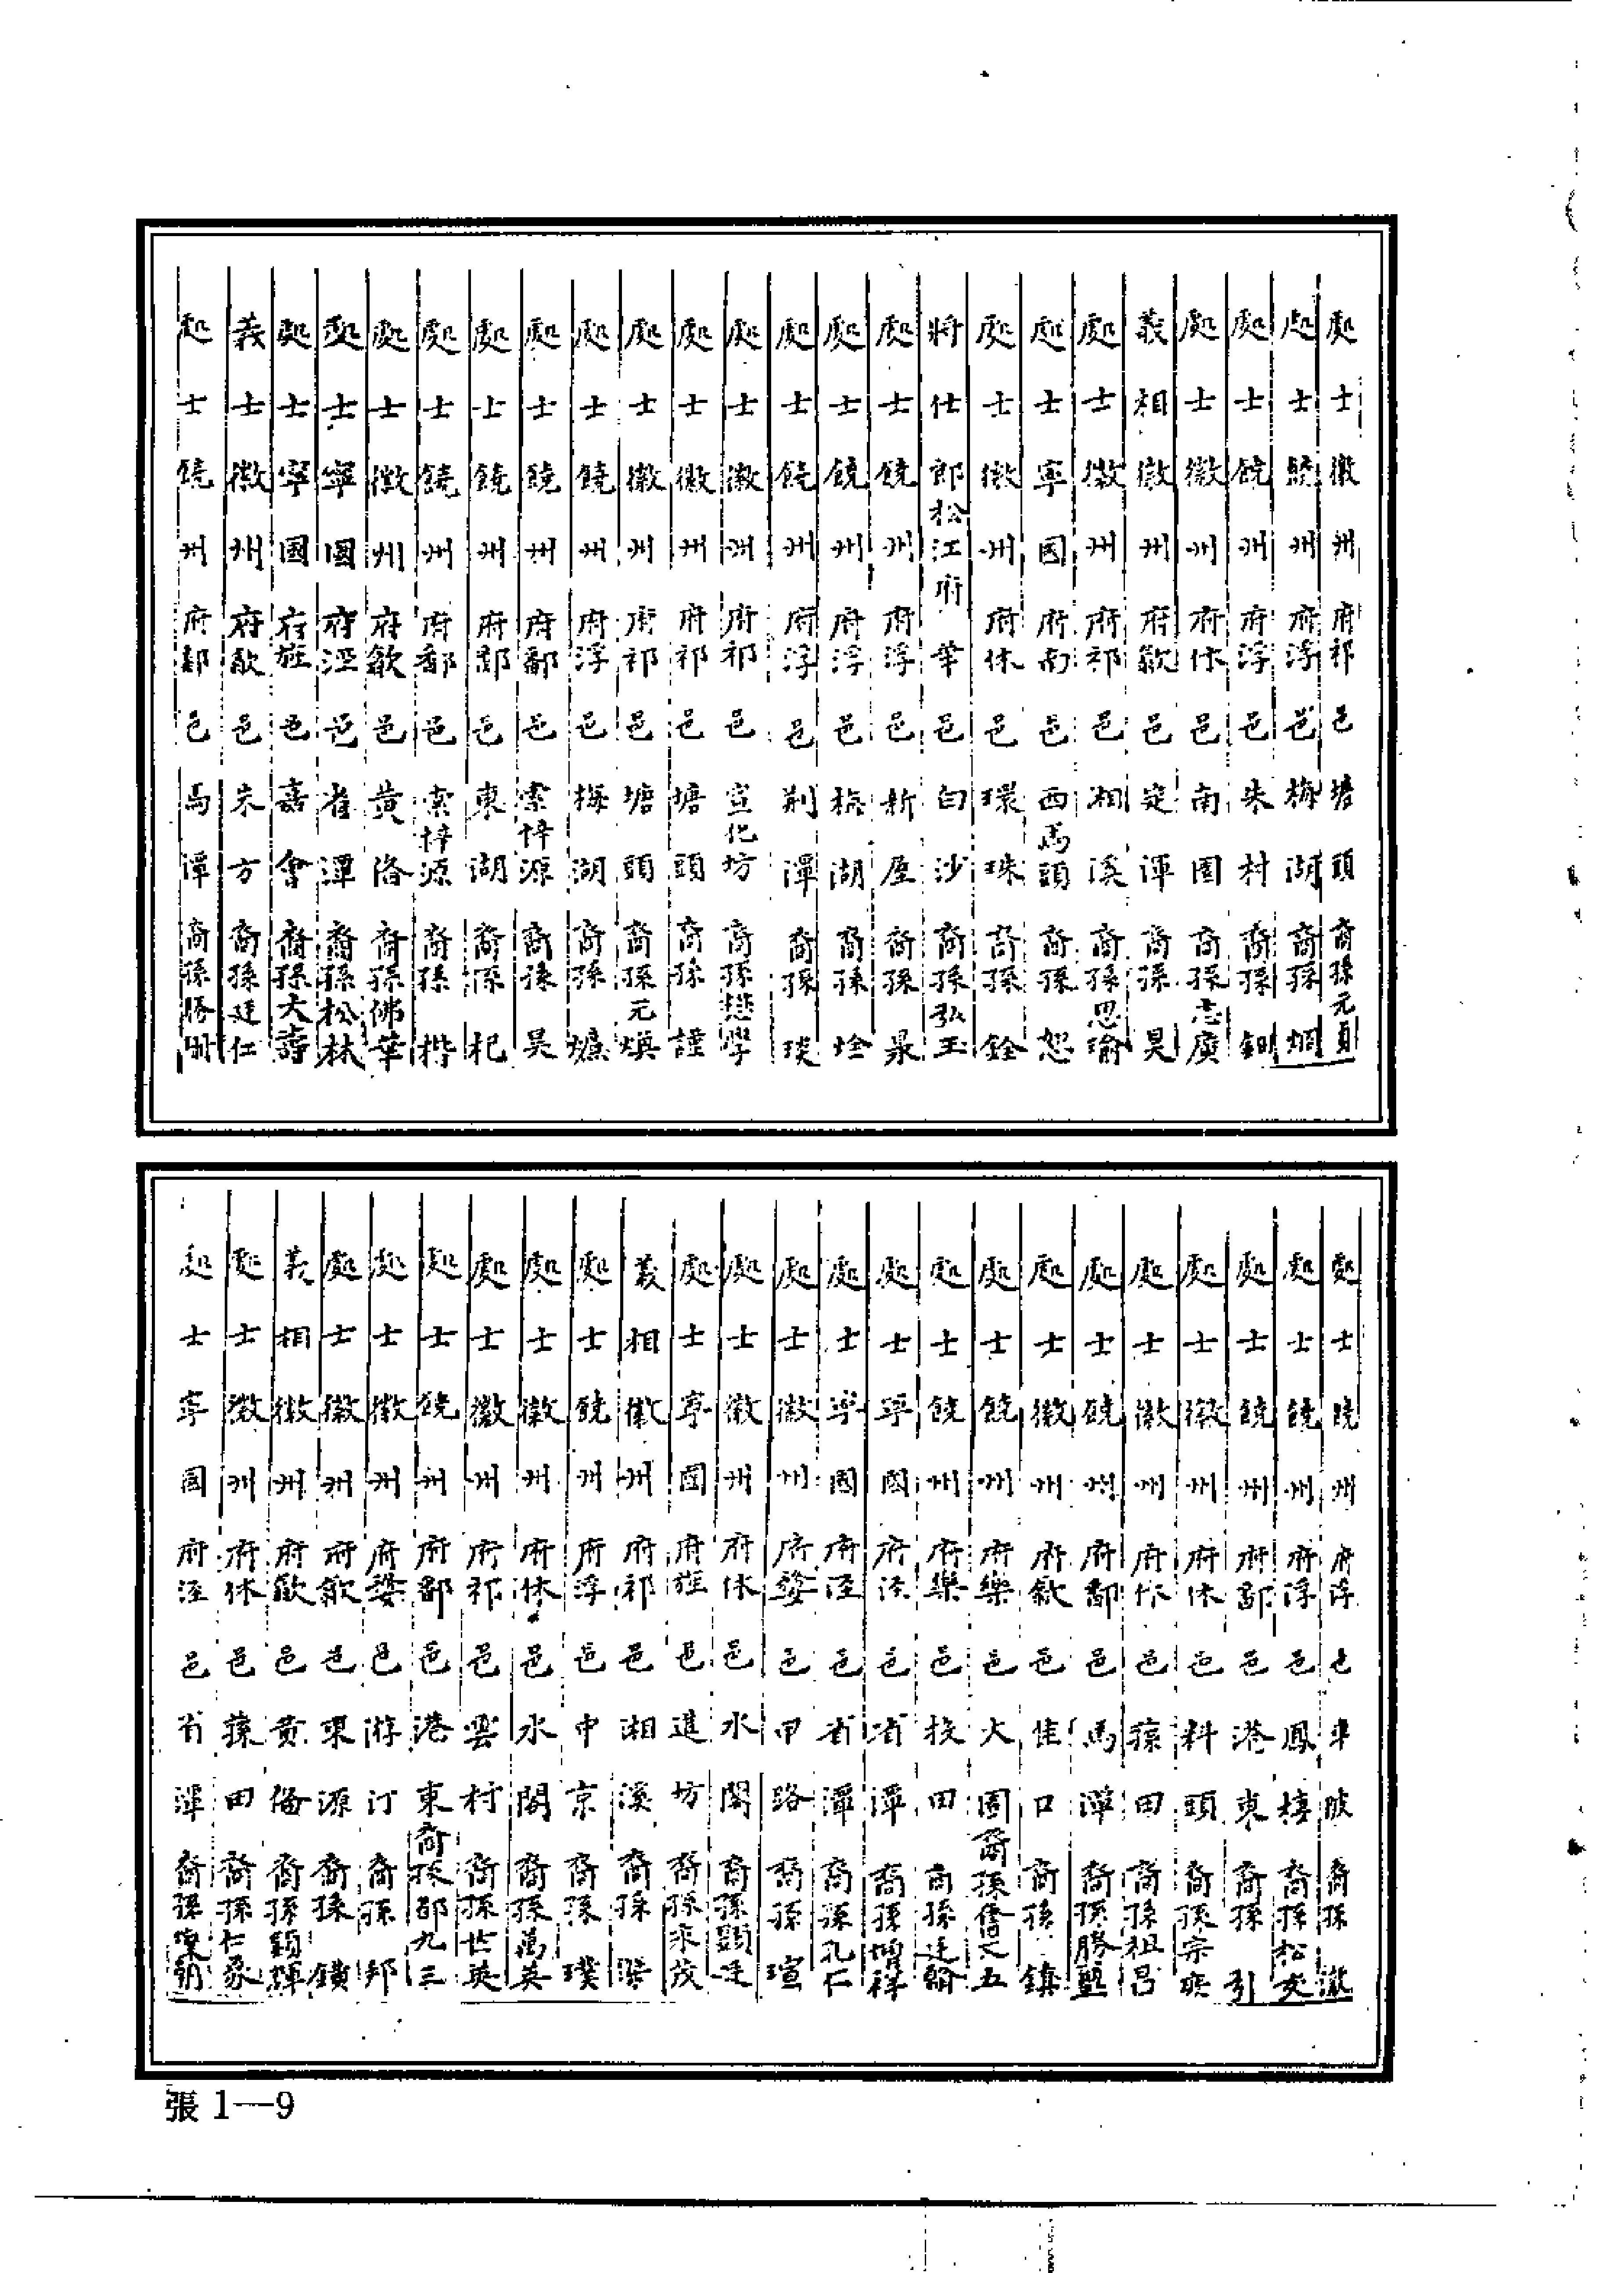 處士徽州府祁邑塘頭裔孫元貞
處士饒州府浮邑梅湖裔孫烱
處士饒州府浮邑朱村裔孫鈿
處士徽州府休邑南園裔孫志廣
義相徽州府歙邑定潭裔孫昊
處士徽州府祁邑相溪裔孫思瑜
處士寧國府南邑西馬頭裔孫恕
處士徽州府休邑環珠裔孫銓
將仕郎松江府華邑白沙裔孫弘玉
處士饒州府浮邑新屋裔孫杲
處士饒州府浮邑梅湖裔孫
處士饒州府浮邑荆潭裔孫琰
處士徽州府祁邑宣化坊裔孫懋學
處士徽州府祁邑塘頭裔孫謹
處士徽州府祁邑塘頭裔孫元煥
處士饒州府浮邑梅湖裔孫
處士饒州府鄱邑索梓源裔孫昊
處士饒州府鄱邑東湖裔孫杞
處士饒州府鄱邑索梓源裔孫楷
處士徽州府歙邑黃洛裔孫佛華
處士寧國府涇邑省潭裔孫松林
處士寧國府旌邑嘉會裔孫大壽
義士徽州府歙邑朱方裔孫廷仁
處士饒州府鄱邑馬潭裔孫勝朋
處士饒州府浮邑車陂裔孫徽
處士饒州府浮邑鳳棲裔孫松友
處士饒州府鄱邑港東裔孫引
處士徽州府休邑料頭裔孫宗奕
處士徽州府休邑蓀田裔孫祖昌
處士饒州府鄱邑馬潭裔孫勝
處士徽州府歙邑佳口裔孫鎮
處士饒州府樂邑大園裔孫僑之五
處士饒州府樂邑技田裔孫廷翰
處士寧國府涇邑省潭裔孫增祥
處士寧國府涇邑省潭裔孫孔仁
處士徽州府婺邑甲路裔孫瑄
處士徽州府休邑水閣裔孫顯廷
處士寧國府旌邑進坊裔孫來茂
義相徽州府祁邑湘溪裔孫
處士饒州府浮邑中京裔孫璞
處士徽州府休邑水閣裔孫萬英
處士徽州府祁邑雲村裔孫世英
處士饒州府鄱邑港東裔孫邵九三
處士徽州府婺邑游汀裔孫邦
處士徽州府歙邑東源裔孫鐄
義相徽州府歙邑黃備裔孫穎輝
處士徽州府休邑蓀田裔孫仁
處士寧國府涇邑省潭裔孫朝
張 1—9